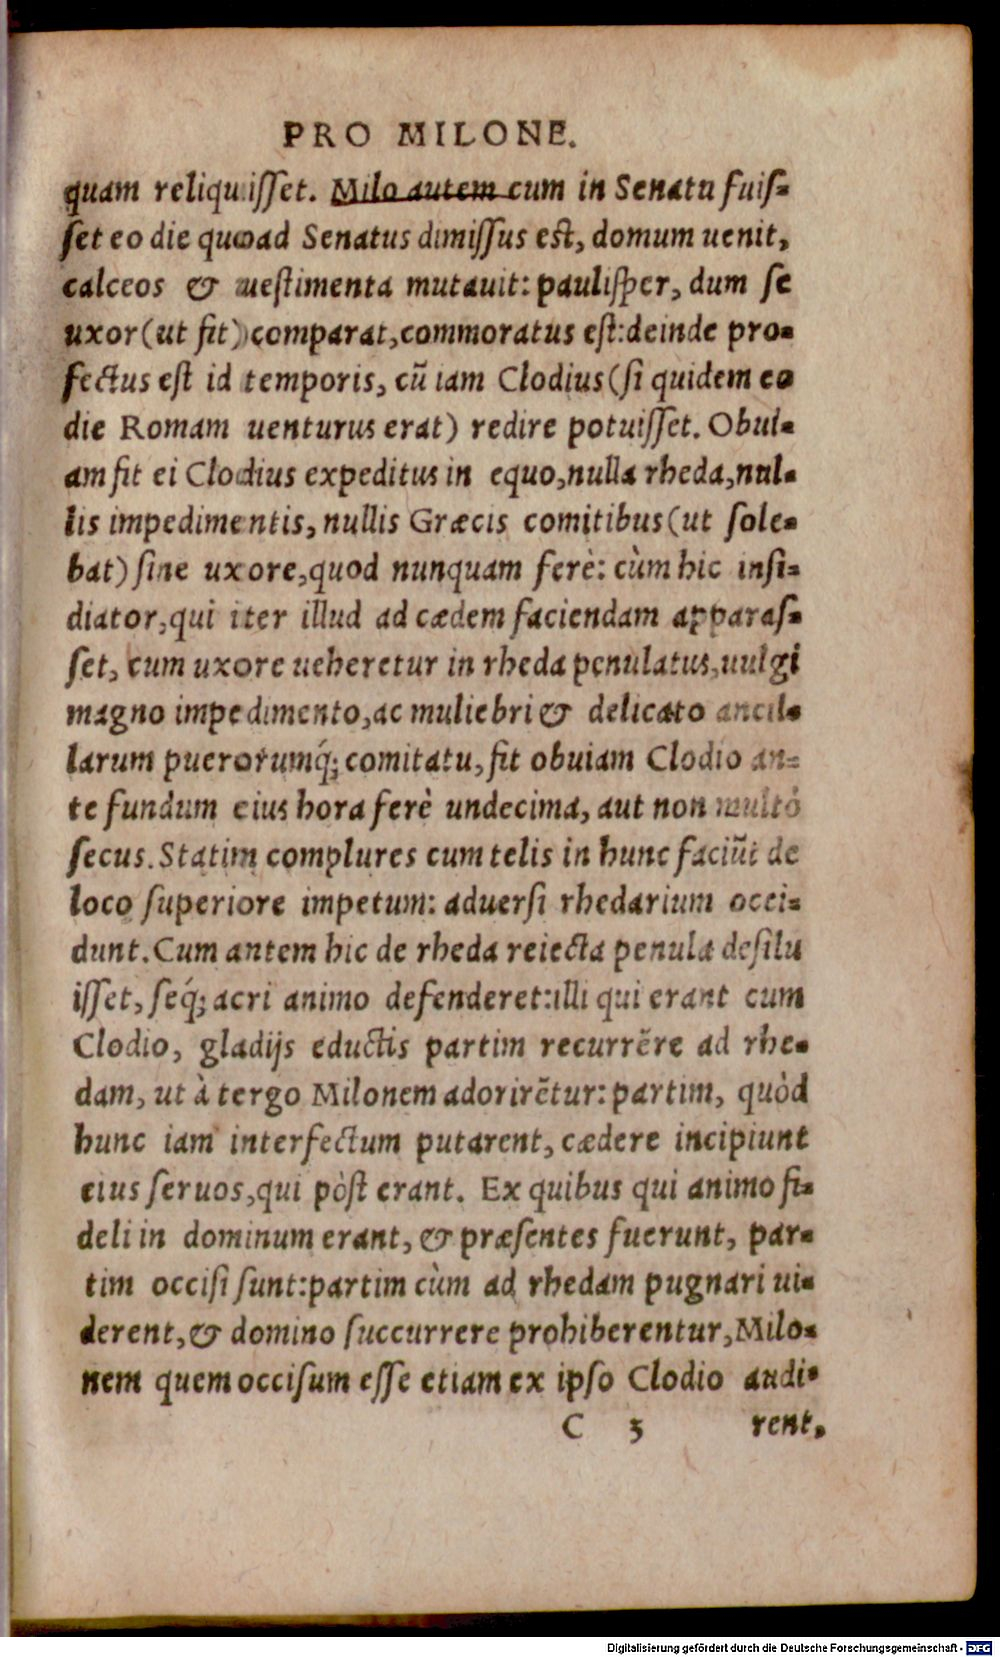 PRO MILONE.
quam reliquisset. Milo autem cum in Senatu fuis-
set eo die quoad Senatus dimissus est, domum uenit,
calceos & uestimenta mutauit: paulisper, dum se
uxor (ut fit) comparat, commoratus est: deinde pro-
fectus est id temporis, cū iam Clodius (si quidem eo
die Romam uenturus erat) redire potuisset. Obui-
am fit ei Clodius expeditus in equo, nulla rheda, nul-
lis impedimentis, nullis Græcis comitibus (ut sole-
bat) sine uxore, quod nunquam ferè: cùm hic insi-
diator, qui iter illud ad cædem faciendam apparas-
set, cum uxore ueheretur in rheda penulatus, uulgi
magno impedimento, ac muliebri & delicato ancil-
larum puerorumq́; comitatu, fit obuiam Clodio an-
te fundum eius hora ferè undecima, aut non multò
secus. Statim complures cum telis in hunc faciūt de
loco superiore impetum: aduersi rhedarium occi-
dunt. Cum antem hic de rheda reiecta penula desilu
isset, seq́; acri animo defenderet: illi qui erant cum
Clodio, gladijs eductis partim recurrēre ad rhe-
dam, ut à tergo Milonem adorirētur: partim, quòd
hunc iam interfectum putarent, cædere incipiunt
eius seruos, qui pòst erant. Ex quibus qui animo fi-
deli in dominum erant, & præsentes fuerunt, par-
tim occisi sunt: partim cùm ad rhedam pugnari ui-
derent, & domino succurrere prohiberentur, Milo-
nem quem occisum esse etiam ex ipso Clodio audi-
C 3 rent,
Digitalisierung gefördert durch die Deutsche Forschungsgemeinschaft - DFG